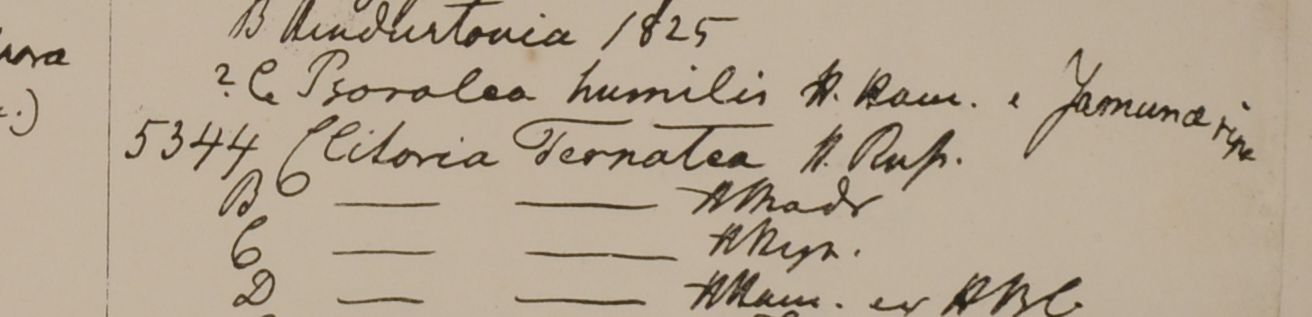 B Hindustania 1825
? C Psoralea humilis H. Ham. e Jamunæ ripa
5344 Clitoria Ternatea H. Russ.
B — — H Madr
C — — H Heyn.
D — — H Ham. ex HBC